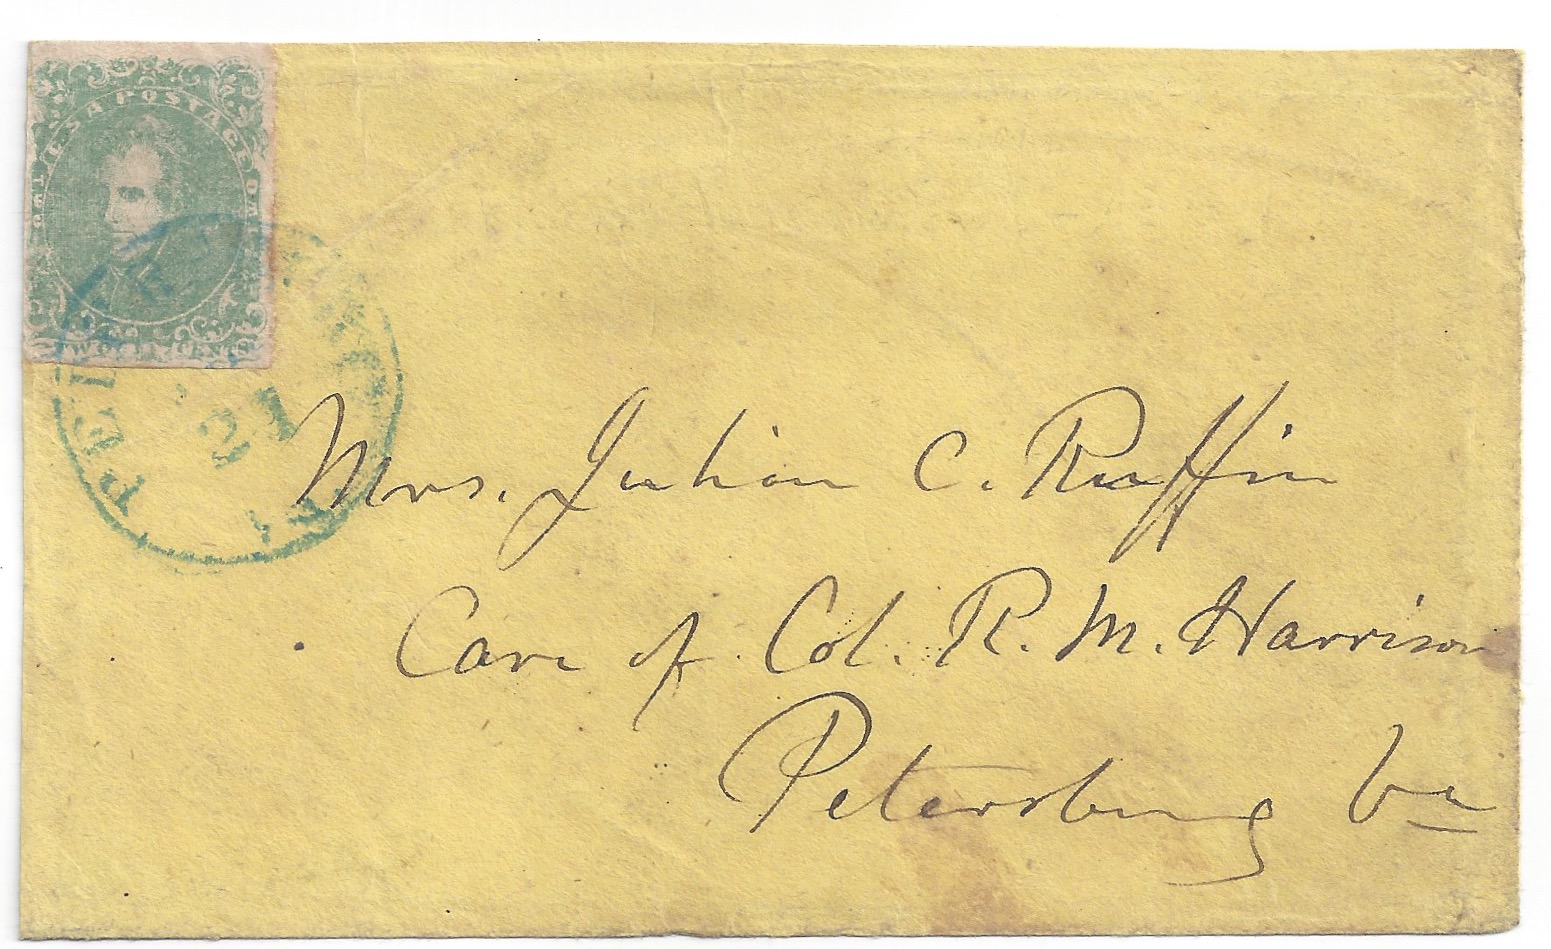 C S A POSTAGE
TWO CENTS
PETERSBURG
21
VA
Mrs. Julian C. Ruffin
Care of Col. R. M. Harrison
Petersburg Va